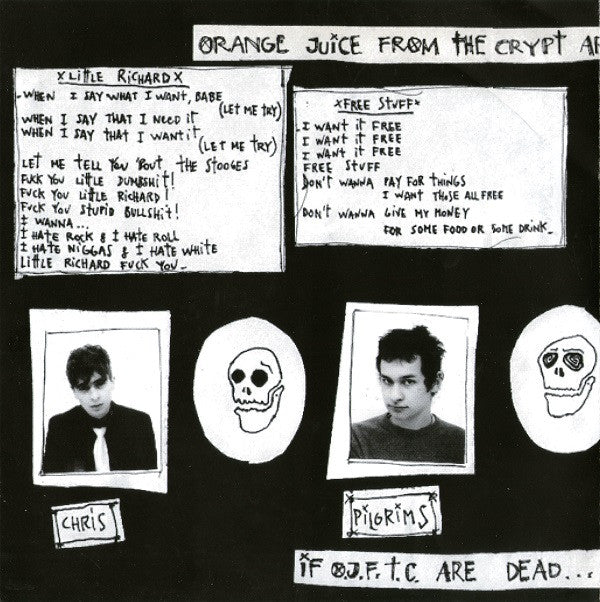 ORANGE JUICE FROM THE CRYPT AR
xLITTLE RICHARDx
-WHEN I SAY WHAT I WANT, BABE
(LET ME TRY)
WHEN I SAY THAT I NEED IT
WHEN I SAY THAT I WANT IT
(LET ME TRY)
LET ME TELL YOU 'BOUT THE STOOGES
FUCK YOU LITTLE DUMBSHIT!
FUCK YOU LITTLE RICHARD!
FUCK YOU STUPID BULLSHIT!
I WANNA...
I HATE ROCK & I HATE ROLL
I HATE NIGGAS & I HATE WHITE
LITTLE RICHARD FUCK YOU_
xFREE STUFFx
-I WANT IT FREE
I WANT IT FREE
I WANT IT FREE
FREE STUFF
DON'T WANNA PAY FOR THINGS
I WANT THOSE ALL FREE
DON'T WANNA GIVE MY MONEY
FOR SOME FOOD OR SOME DRINK_
CHRIS
PILGRIMS
IF O.J.F.T.C. ARE DEAD...